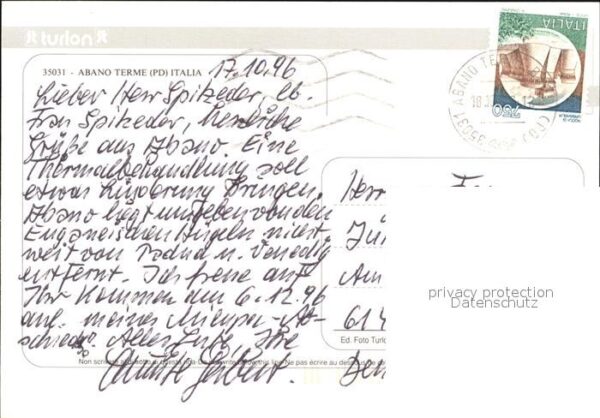 turlon
35031 - ABANO TERME (PD) ITALIA
17.10.96
Lieber Herr Spitzeder, lb.
Frau Spitzeder, herzliche
Grüße aus Abano. Eine
Thermalbehandlung soll
etwas Linderung bringen.
Abano liegt umgeben von den
Euganeischen Hügeln nicht
weit von Padua u. Venedig
entfernt. Ich freue auf
Ihr Kommen am 6.12.96
anl. meines Milupa-Ab-
schieds. Alles Gute, Ihre
ITALIA
750
35031 ABANO TE
Herr
Fr
Am
614
Ed. Foto Turlo
privacy protection
Datenschutz